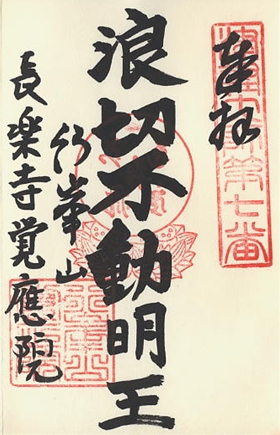 奉拝
第七番
浪切不動明王
竹峯山
長楽寺覚應院